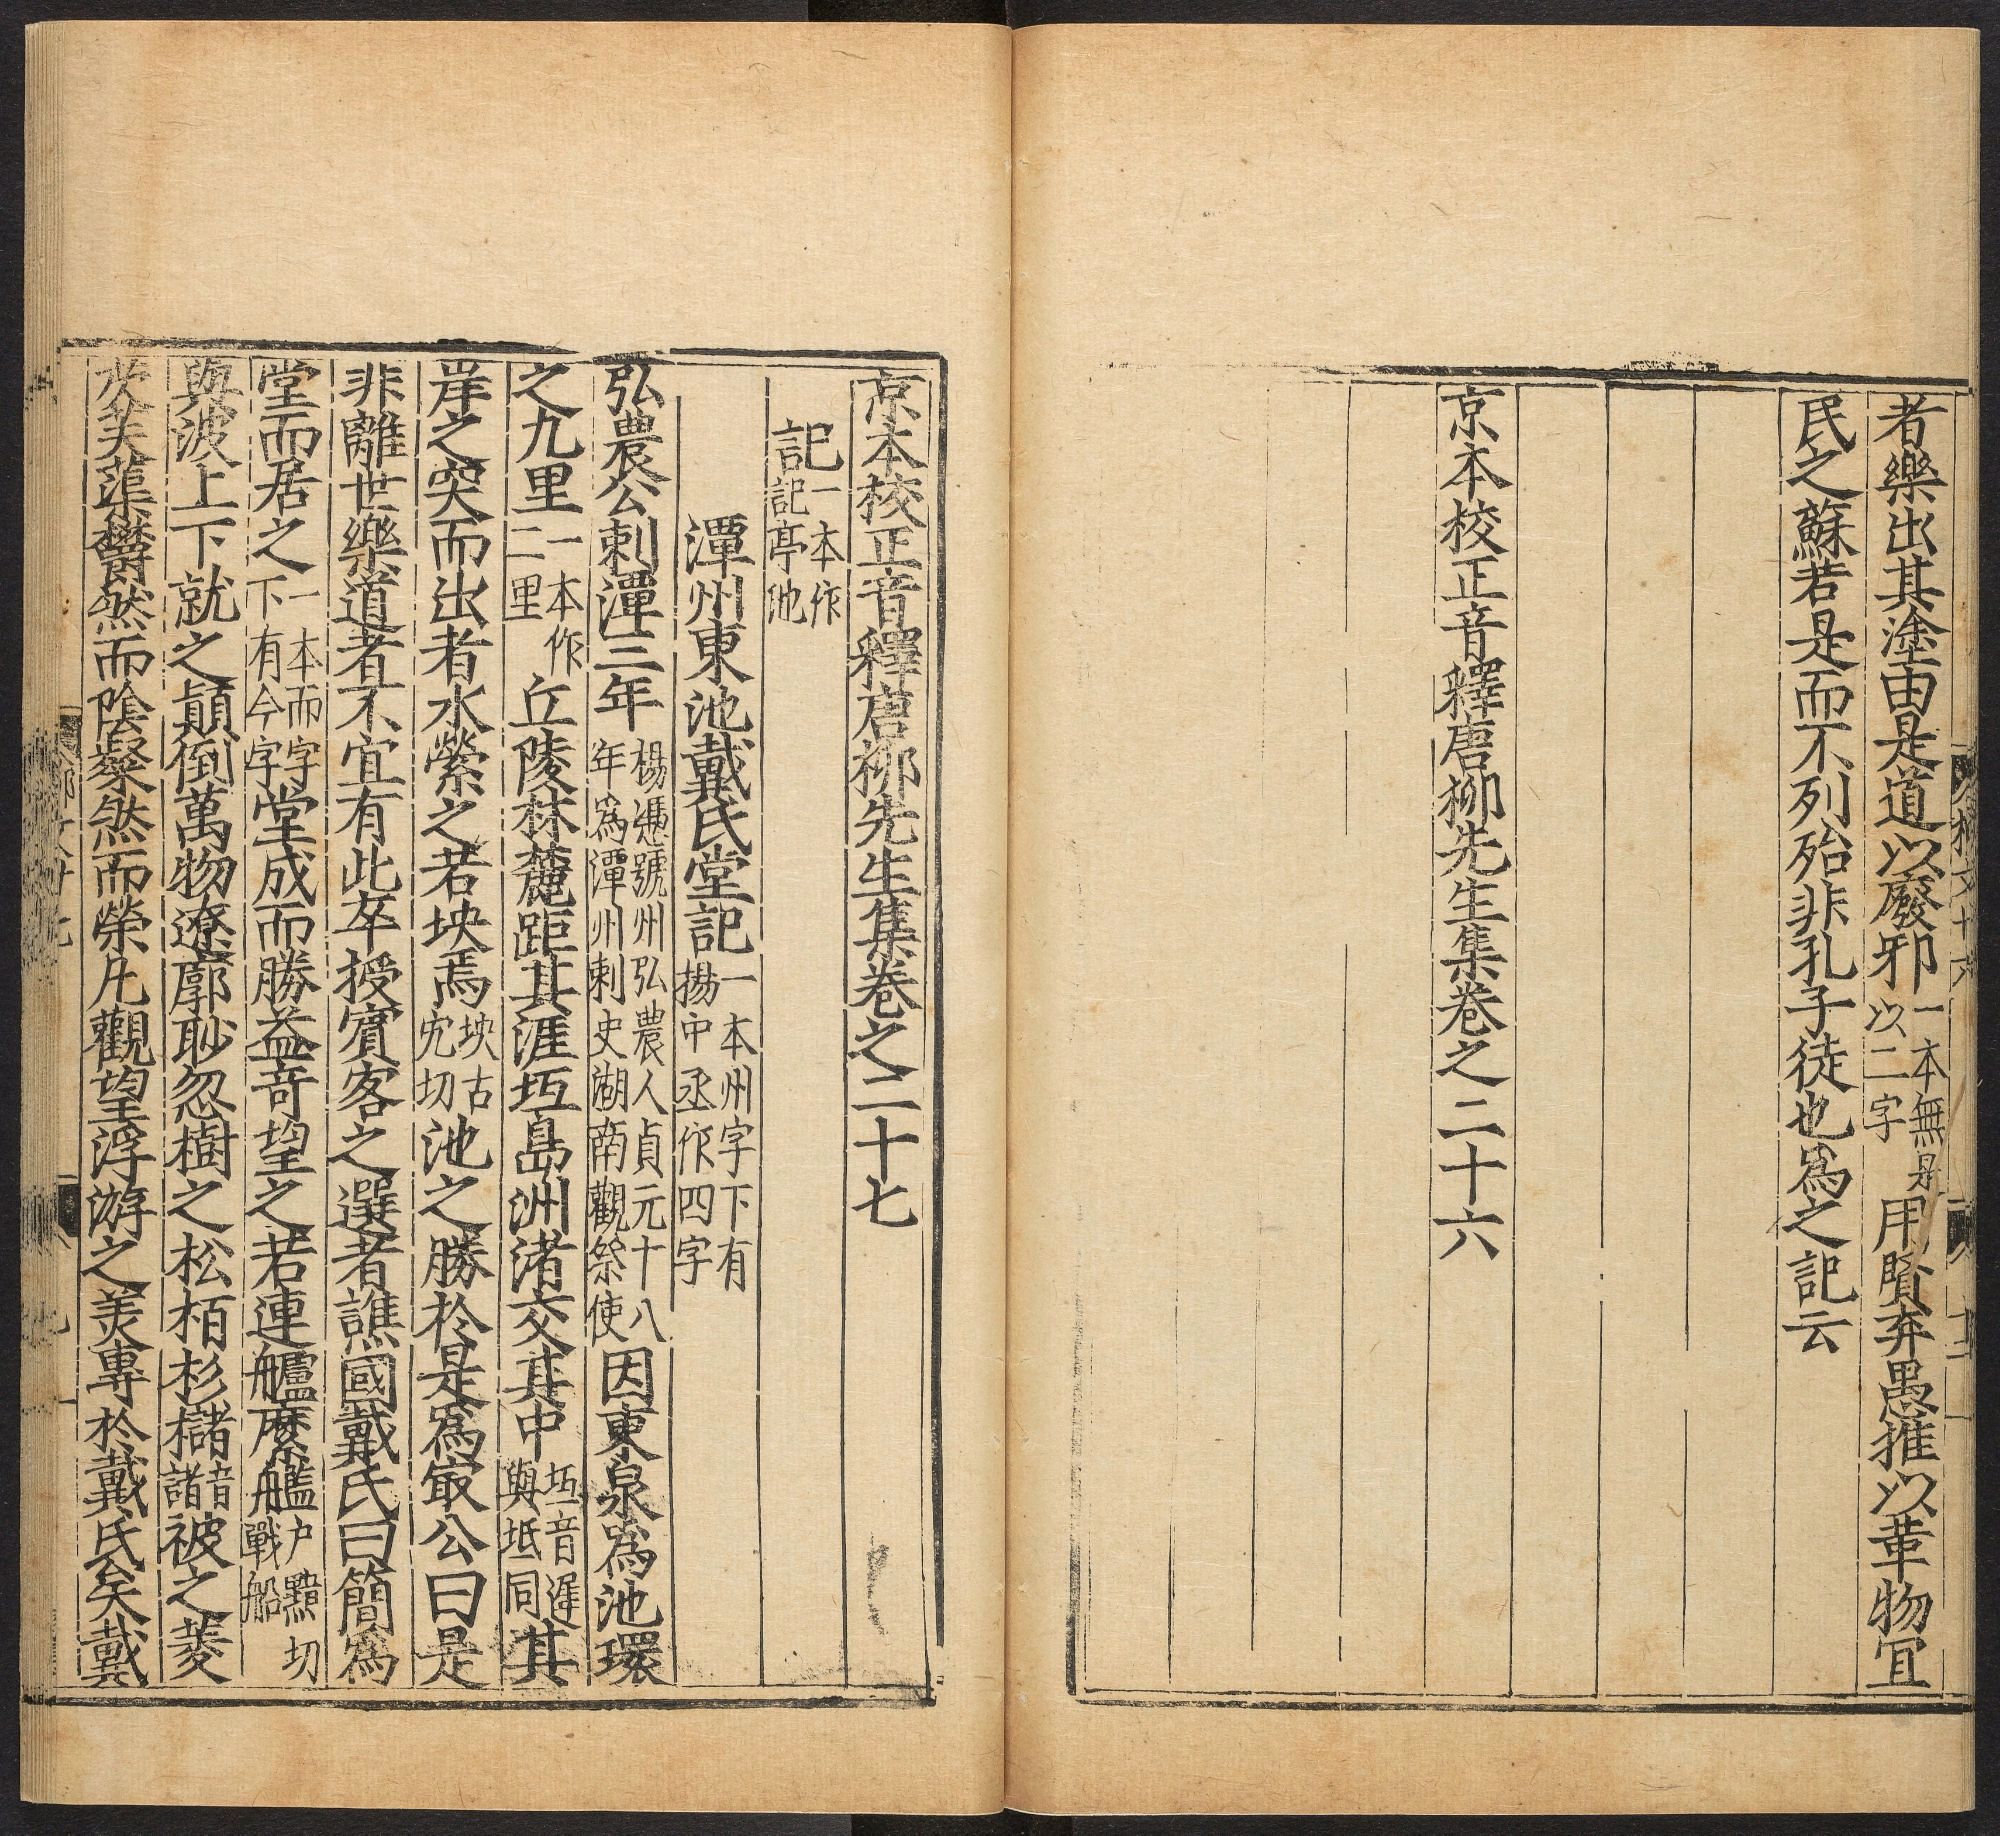 者樂出其塗由是道以廢邪一本無是以二字用賢弃愚推以革物宜
民之蘇若是而不列殆非孔子徒也爲之記云
京本校正音釋唐柳先生集卷之二十六
京本校正音釋唐柳先生集卷之二十七
記一本作記亭池
潭州東池戴氏堂記一本州字下有揚中丞作四字
弘農公刺潭三年楊憑虢州弘農人貞元十八年爲潭州刺史湖南觀察使因東泉爲池環
之九里一本作二里丘陵林麓距其涯坻島洲渚交其中坻音遲與坻同其
岸之突而出者水縈之若玦焉玦古穴切池之勝於是爲冣公曰是
非離世樂道者不宜有此卒授賓客之選者譙國戴氏曰簡爲
堂而居之一本而字下有今字堂成而勝益奇望之若連艫縻艦戶黯切戰船
與波上下就之顛倒萬物遼廓眇忽樹之松栢杉櫧音諸被之菱
芡芙蕖欝然而陰粲然而榮凡觀望浮游之美專於戴氏矣戴